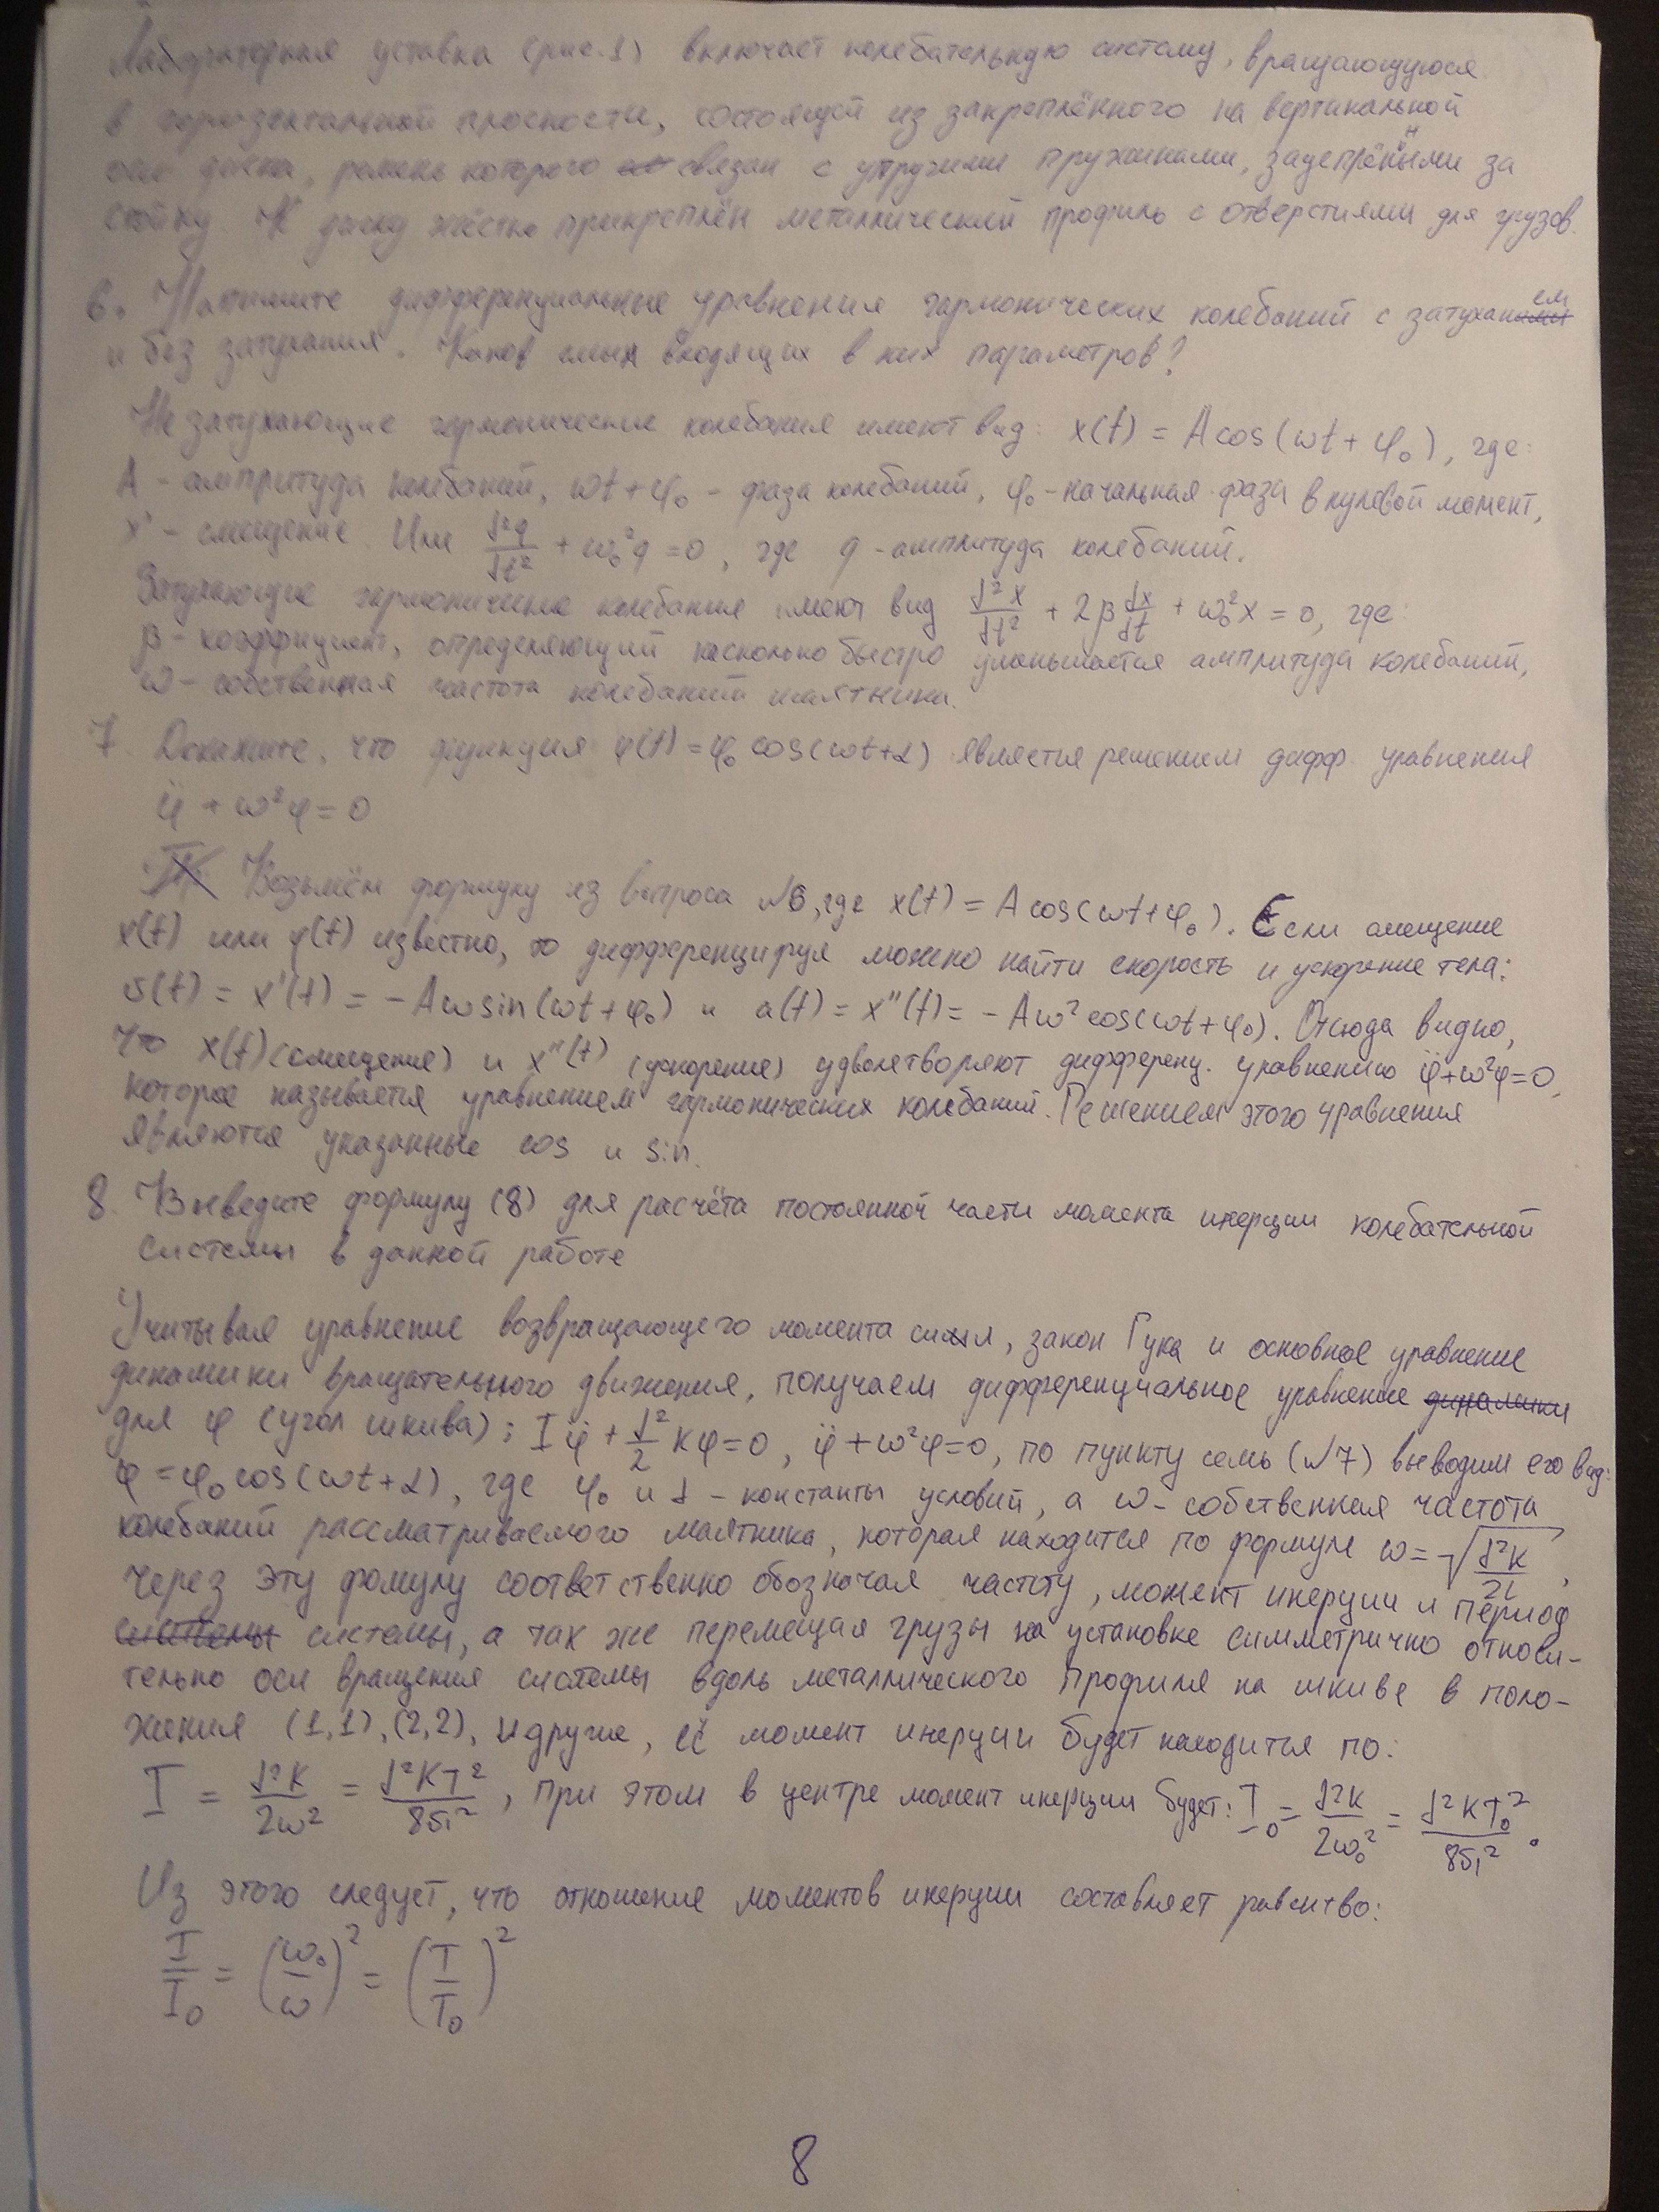 Лабораторная уставка (рис. 1) включает колебательную систему, вращающуюся
в горизонтальной плоскости, состоящей из закреплённого на вертикальной
оси диска, ремень которого связан с упругими пружинами, зацеплёнными за
стойку. К диску жёстко прикреплён металлический профиль с отверстиями для грузов.
6. Напишите дифференциальные уравнения гармонических колебаний с затуханием
и без затухания. Каков смысл входящих в них параметров?
Не затухающие гармонические колебания имеют вид: x(t) = A cos(ωt + φ₀), где:
A - амплитуда колебаний, ωt + φ₀ - фаза колебаний, φ₀ - начальная фаза в нулевой момент,
x - смещение. Или d²q/dt² + ω₀²q = 0, где q - амплитуда колебаний.
Затухающие гармонические колебания имеют вид d²x/dt² + 2β dx/dt + ω₀²x = 0, где:
β - коэффициент, определяющий насколько быстро уменьшается амплитуда колебаний,
ω - собственная частота колебаний маятника.
7. Докажите, что функция φ(t) = φ₀ cos(ωt+α) является решением дифф. уравнения
φ̈ + ω²φ = 0
Возьмём формулу из вопроса №6, где x(t) = A cos(ωt + φ₀). Если смещение
x(t) или φ(t) известно, то дифференцируя можно найти скорость и ускорение тела:
υ(t) = x'(t) = -Aω sin(ωt + φ₀) и a(t) = x''(t) = -Aω² cos(ωt + φ₀). Отсюда видно,
что x(t) (смещение) и x''(t) (ускорение) удволетворяют дифференц. уравнению φ̈ + ω²φ = 0,
которое называется уравнением гармонических колебаний. Решением этого уравнения
являются указанные cos и sin.
8. Выведите формулу (8) для расчёта постоянной части момента инерции колебательной
системы в данной работе
Учитывая уравнение возвращающего момента силы, закон Гука и основное уравнение
динамики вращательного движения, получаем дифференциальное уравнение динамики
для φ (угол шкива): Iφ̈ + d²/2 kφ = 0, φ̈ + ω²φ = 0, по пункту семь (№7) выводим его вид:
φ = φ₀ cos(ωt + α), где φ₀ и α - константы условий, а ω - собственная частота
колебаний рассматриваемого маятника, которая находится по формуле ω = √(d²k/2I),
через эту фомулу соответственно обозначая частоту, момент инерции и период
системы системы, а так же перемещая грузы на установке симметрично относи-
тельно оси вращения системы вдоль металлического профиля на шкиве в поло-
жения (1,1), (2,2), и другие, её момент инерции будет находится по:
I = d²k/2ω² = d²kT²/8π², при этом в центре момент инерции будет: I₀ = d²k/2ω₀² = d²kT₀²/8π².
Из этого следует, что отношение моментов инерции составляет равенство:
I/I₀ = (ω₀/ω)² = (T/T₀)²
8